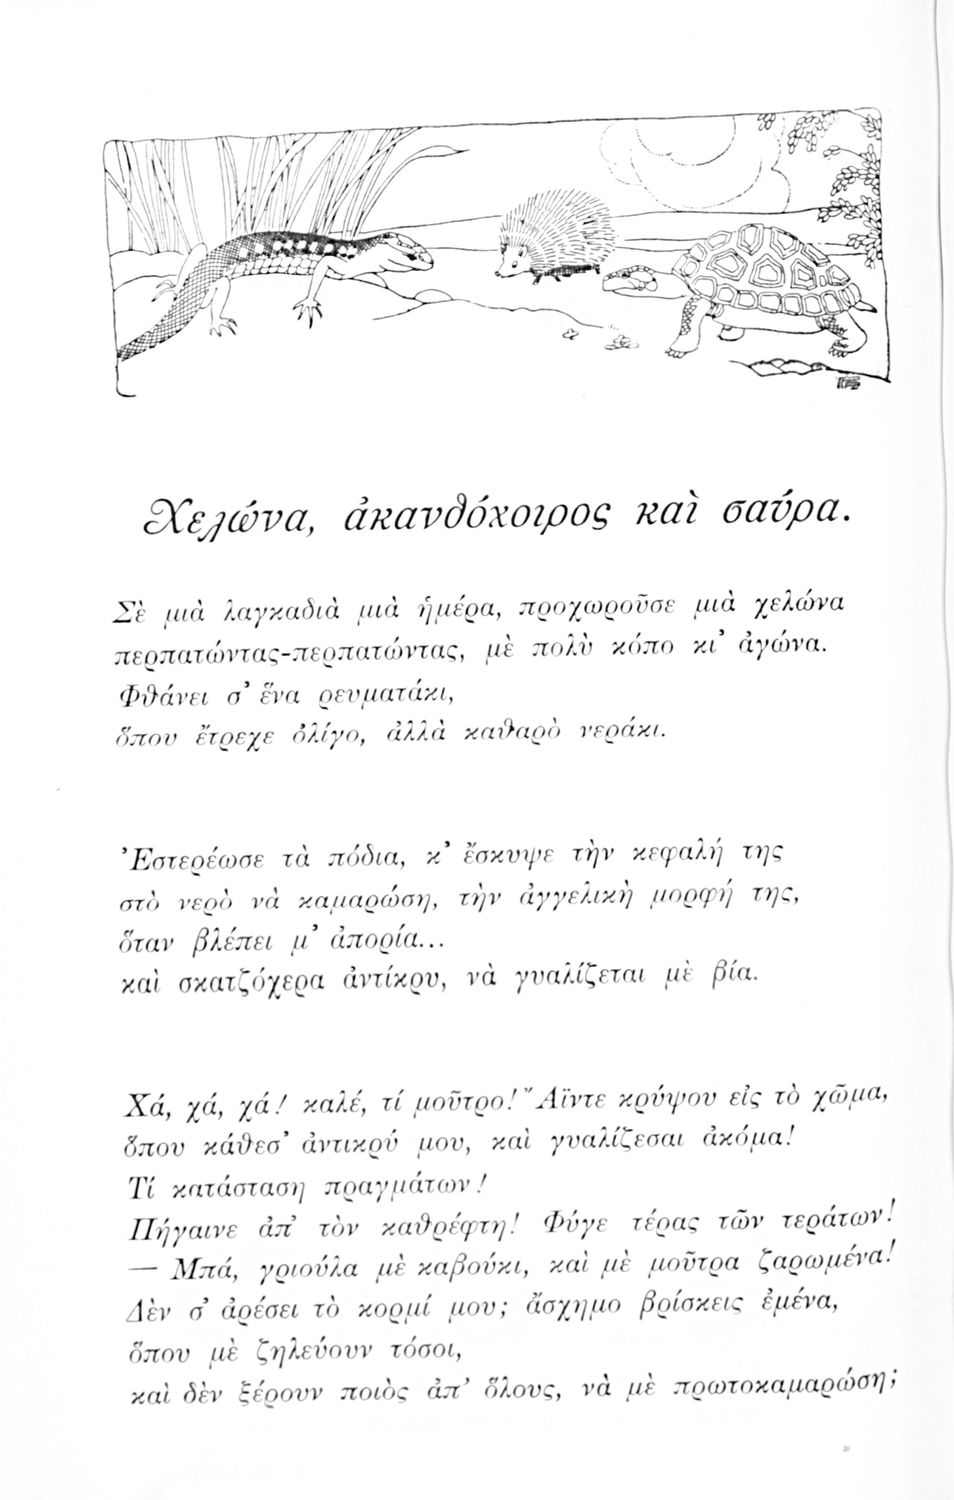 Χελώνα, ἀκανθόχοιρος καὶ σαύρα.
Σὲ μιὰ λαγκαδιὰ μιὰ ἡμέρα, προχωροῦσε μιὰ χελώνα
περπατώντας-περπατώντας, μὲ πολὺ κόπο κι᾿ ἀγώνα.
Φθάνει σ᾿ ἕνα ρευματάκι,
ὅπου ἔτρεχε ὀλίγο, ἀλλὰ καθαρὸ νεράκι.
Ἐστερέωσε τὰ πόδια, κ᾿ ἔσκυψε τὴν κεφαλή της
στὸ νερὸ νὰ καμαρώση, τὴν ἀγγελικὴ μορφή της,
ὅταν βλέπει μ᾿ ἀπορία...
καὶ σκατζόχερα ἀντίκρυ, νὰ γυαλίζεται μὲ βία.
Χά, χά, χά! καλέ, τί μοῦτρο! Ἄϊντε κρύψου εἰς τὸ χῶμα,
ὅπου κάθεσ᾿ ἀντικρύ μου, καὶ γυαλίζεσαι ἀκόμα!
Τί κατάσταση πραγμάτων!
Πήγαινε ἀπ᾿ τὸν καθρέφτη! Φύγε τέρας τῶν τεράτων!
— Μπά, γριούλα μὲ καβούκι, καὶ μὲ μοῦτρα ζαρωμένα!
Δὲν σ᾿ ἀρέσει τὸ κορμί μου; ἄσχημο βρίσκεις ἐμένα,
ὅπου μὲ ζηλεύουν τόσοι,
καὶ δὲν ξέρουν ποιὸς ἀπ᾿ ὅλους, νὰ μὲ πρωτοκαμαρώση;